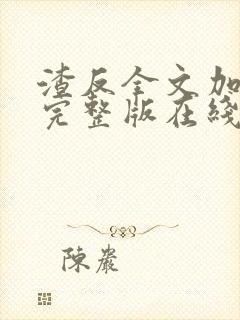 渣反全文加
完整版在綫
陳巖